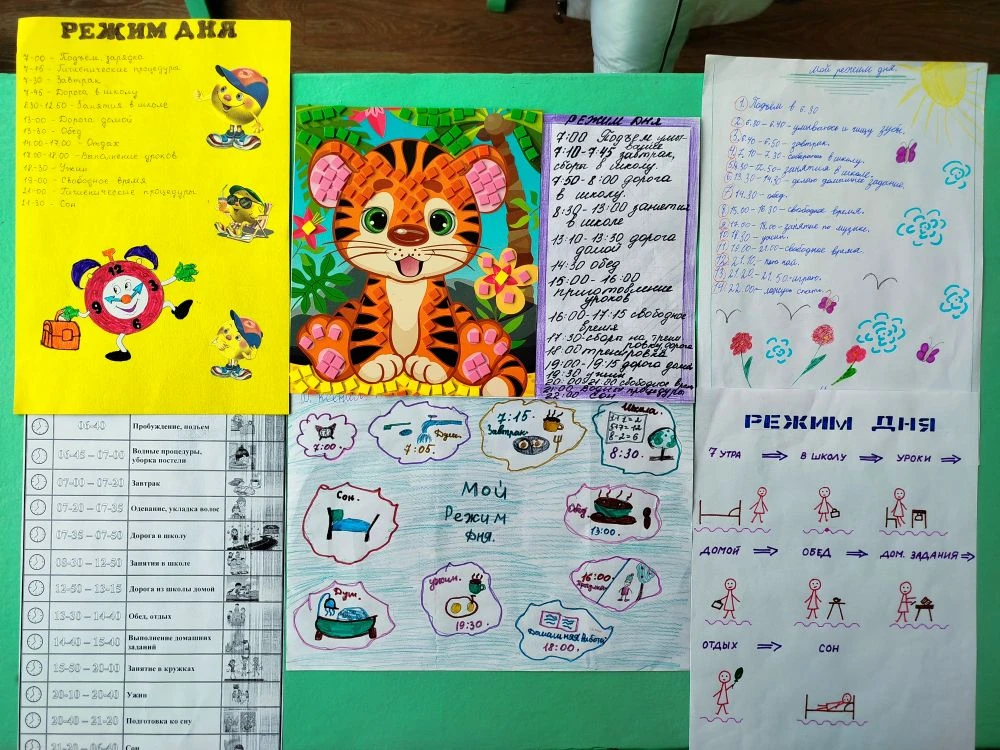 РЕЖИМ ДНЯ
7-00 - Подъем, зарядка
7-15 - Гигиенические процедуры
7-30 - Завтрак
7-45 - Дорога в школу
8.30-12.50 - Занятия в школе
13-00 - Дорога домой
13-30 - Обед
14.00-17.00 - Отдых
17.00-18.00 - Выполнение уроков
18-30 - Ужин
19-00 - Свободное время
21-00 - Гигиенические процедуры
21-30 - Сон
12
3
6
9
РЕЖИМ ДНЯ
7:00 Подъем, умы-
вание
7:10-7:45 завтрак,
сборы в школу
7:50-8:00 дорога
в школу
8:30-13:00 занятия
в школе
13:10-13:30 дорога
домой
14:30 обед
15:00-16:00
приготовление
уроков
16:00-17:15 свободное
время
17:30 сборы на трени
ровку, дорога
18:00 тренировка
19:00-19:15 дорога домой
19:30 ужин
20:00-21:00 свободное время
21:00 водные процедуры
22:00 сон
Мой режим дня.
1. Подъем в 6.30
2. 6.30-6.40 - умываюсь и чищу зубы.
3. 6.40-6.50 - завтрак.
4. 7.10-7.30 - собираюсь в школу.
12.50 - занятия в школе.
6. 13.30-14.30 - делаю домашнее задание.
7. 14.30 - обед.
8. 15.00-16.30 - свободное время.
9. 17.00-18.00 - занятие по музыке.
10. 18.30 - ужин.
11. 19.00-21.00 - свободное время.
12. 21.10 -
13. 21.20-21.50 - играю.
14. 22.00 - ложусь спать.
06-40 Пробуждение, подъем
06-45 – 07-00 Водные процедуры, уборка постели
07-00 – 07-20 Завтрак
07-20 – 07-35 Одевание, укладка волос
07-35 – 07-50 Дорога в школу
08-30 – 12-50 Занятия в школе
12-50 – 13-15 Дорога из школы домой
13-30 – 14-40 Обед, отдых
14-40 – 15-40 Выполнение домашних заданий
15-50 – 20-00 Занятие в кружках
20-10 – 20-40 Ужин
20-40 – 21-20 Подготовка ко сну
21-20 – 06-40 Сон
7:00.
Душ.
7:05.
7:15.
Завтрак
Школа.
8:30.
Сон.
Мой
Режим
Дня.
Обед
13:00.
Душ.
Ужин.
19:30.
16:00.
Домашняя работа
18:00.
РЕЖИМ ДНЯ
7 УТРА ⇒ В ШКОЛУ ⇒ УРОКИ ⇒
ДОМОЙ ⇒ ОБЕД ⇒ ДОМ. ЗАДАНИЯ ⇒
ОТДЫХ ⇒ СОН